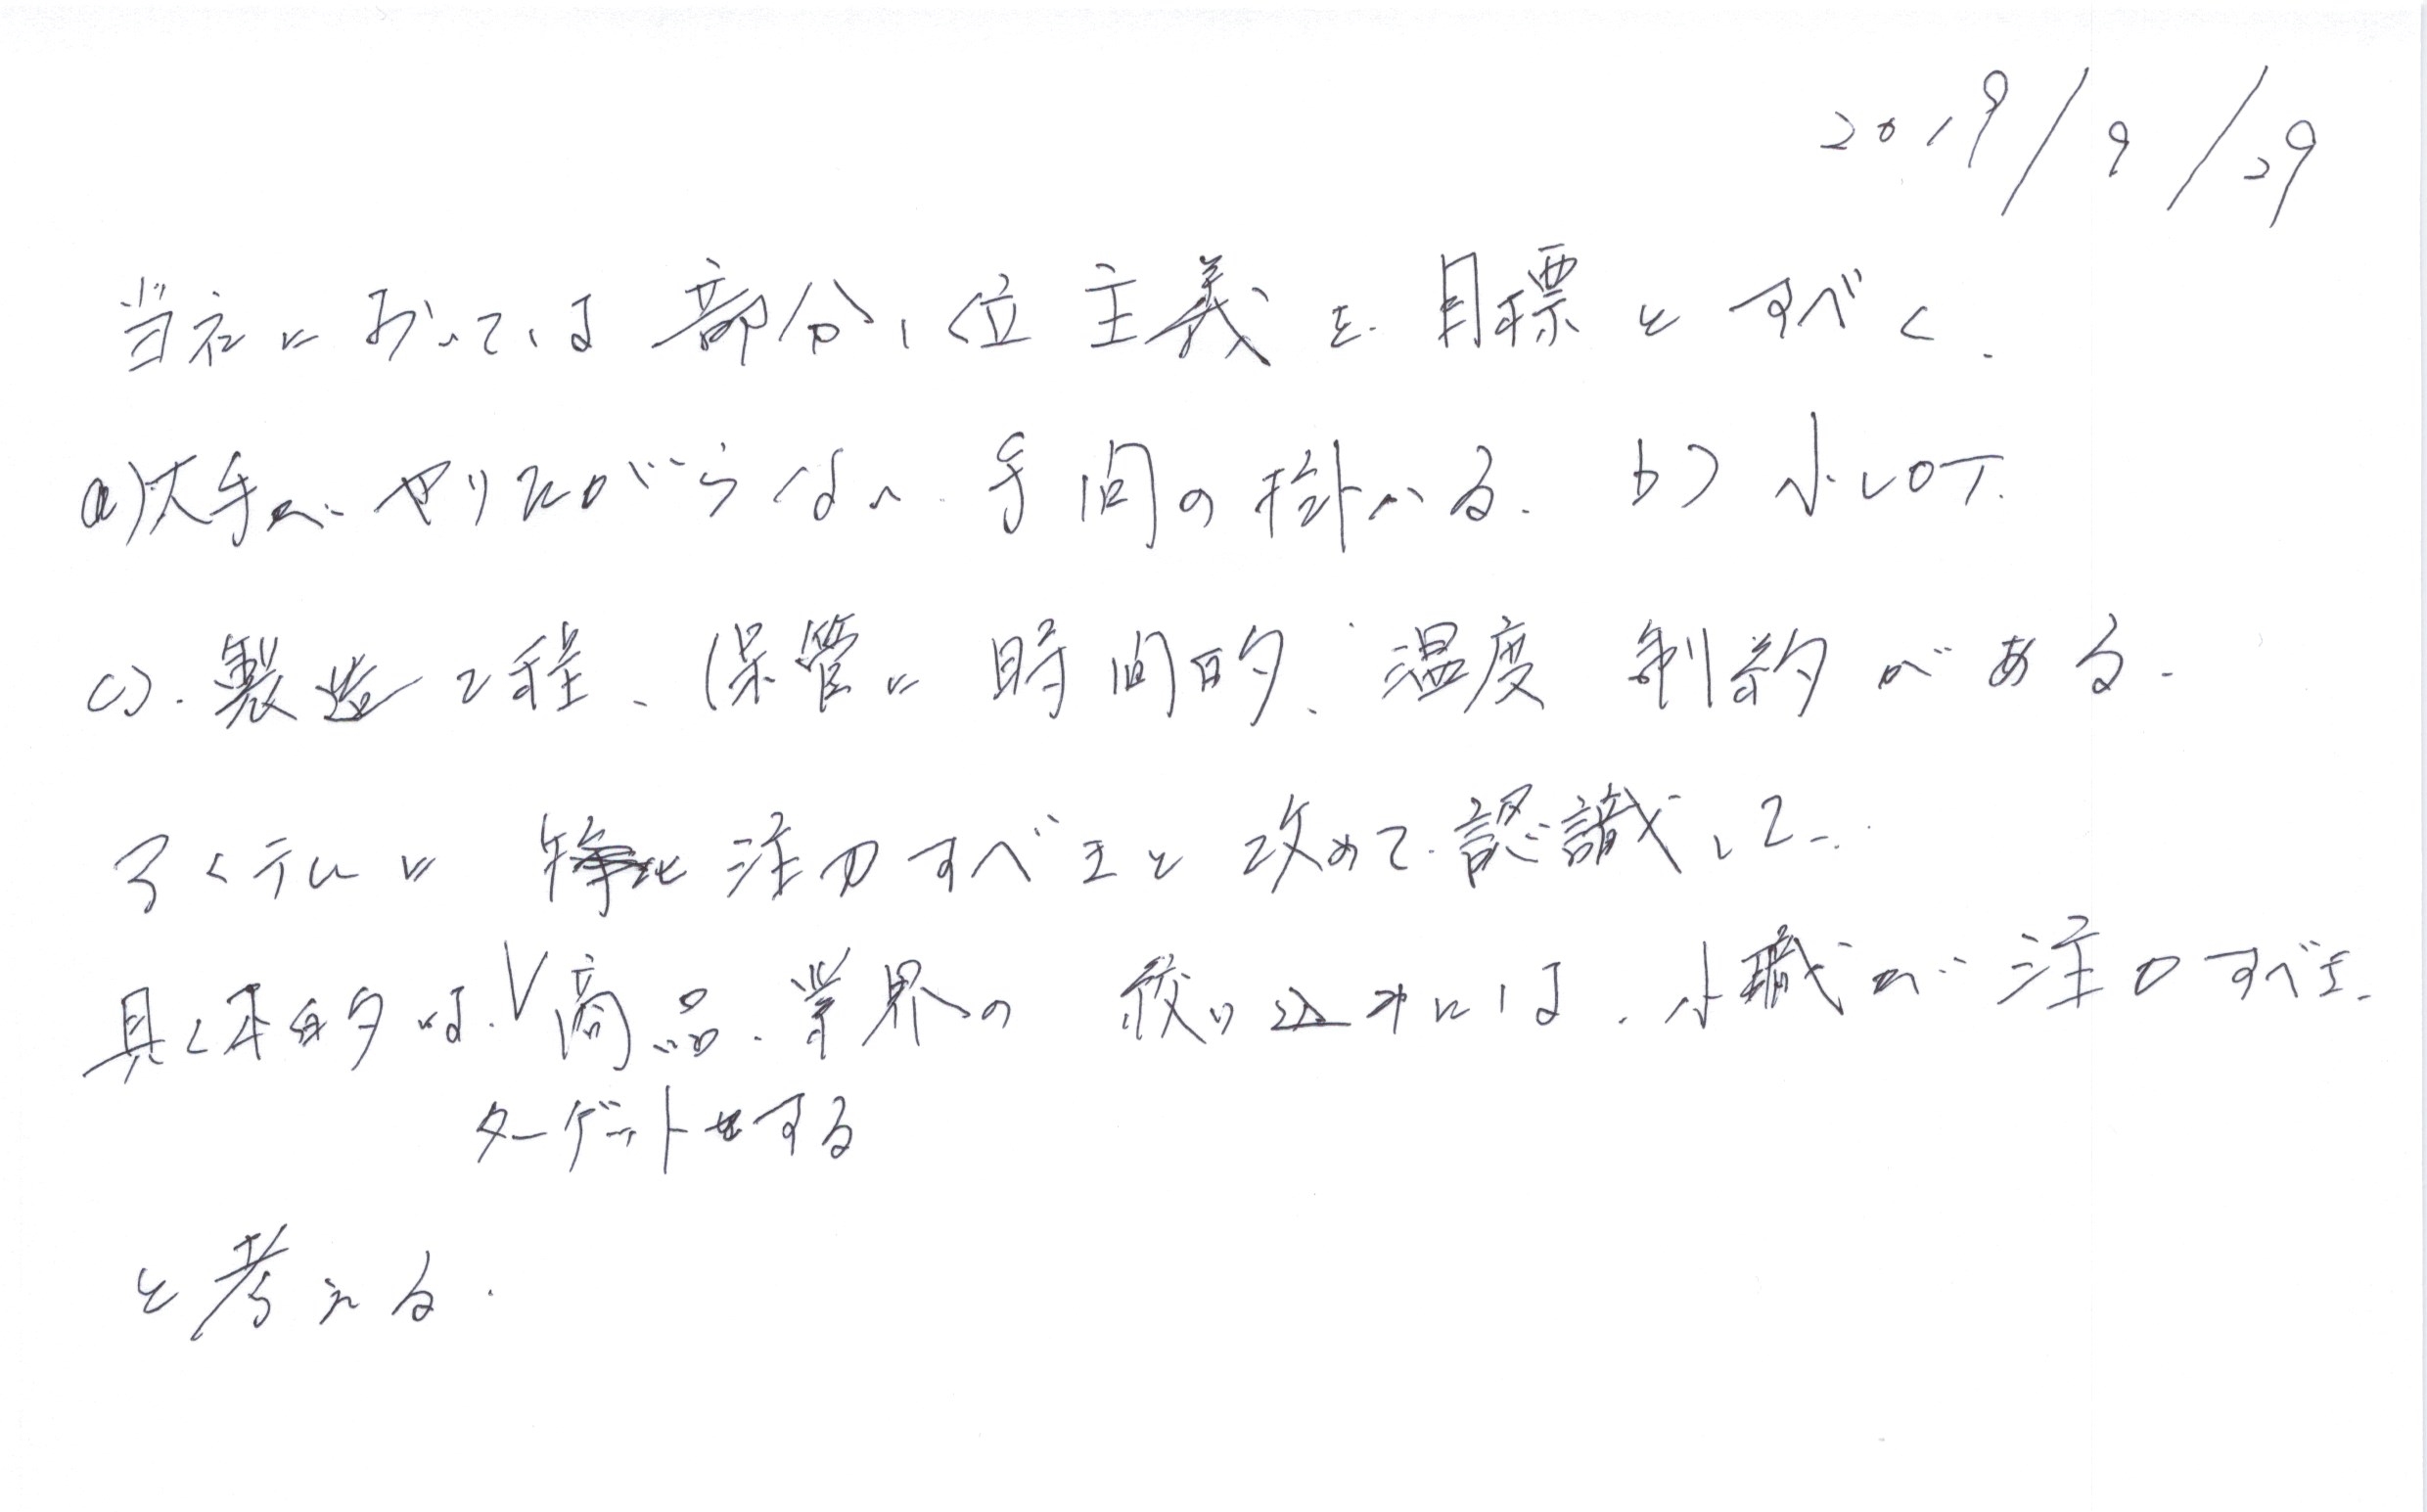 2019/9/29
当社においては部分1位主義を目標とすべく、
a)大手がやりたがらない手間の掛かる. b)小ロット.
c).製造工程、保管に時間的、温度制約がある.
アイテムに 注力すべきと改めて認識して..
具体的な、V商品、業界の絞り込みには、小職が注力すべき、
ターゲットをする
と考える.